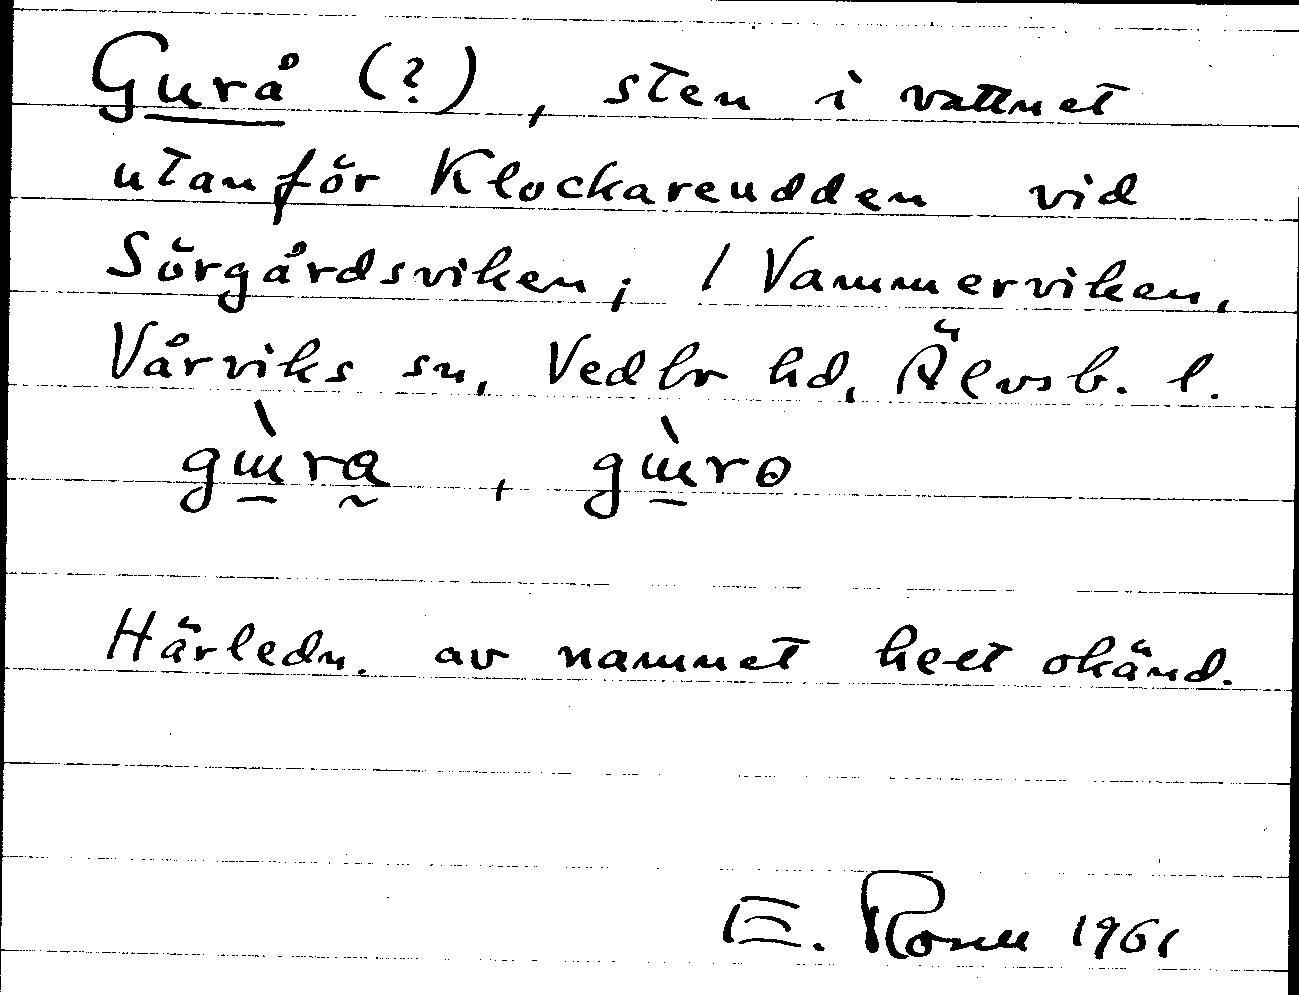 Gurå (?), sten i vattnet
utanför Klockareudden vid
Sörgårdsviken, / Vammerviken,
Vårviks sn, Vedbo hd, Älvsb. l.
Härledn. av namnet helt okänd.
E. 1961